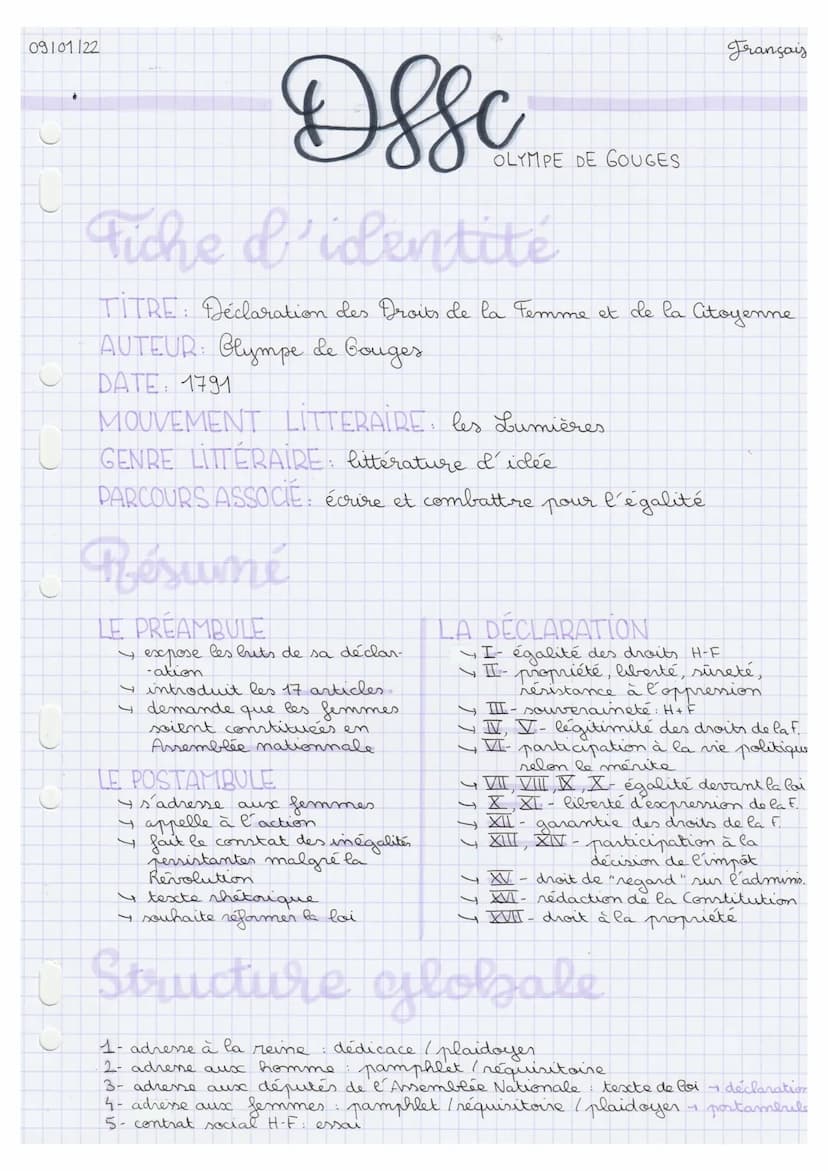 09/01/22
Français
DFFC
OLYMPE DE GOUGES
Fiche d'identité
TITRE : Déclaration des Droits de la Femme et de la Citoyenne
AUTEUR : Olympe de Gouges
DATE : 1791
MOUVEMENT LITTERAIRE : les Lumières
GENRE LITTÉRAIRE : littérature d'idée
PARCOURS ASSOCIÉ : écrire et combattre pour l'égalité
Résumé
LE PRÉAMBULE
↳ expose les buts de sa déclar-
-ation
↳ introduit les 17 articles
↳ demande que les femmes
soient constituées en
Assemblée nationnale
LE POSTAMBULE
↳ s'adresse aux femmes
↳ appelle à l'action
↳ fait le constat des inégalités
persistantes malgré la
Révolution
↳ texte rhétorique
↳ souhaite réformer la loi
LA DÉCLARATION
↳ I - égalité des droits H-F
↳ II - propriété, liberté, sûreté,
résistance à l'oppression
↳ III - souveraineté : H+F
↳ IV, V - légitimité des droits de la F.
↳ VI - participation à la vie politique
selon le mérite
↳ VII, VIII, IX, X - égalité devant la loi
↳ X, XI - liberté d'expression de la F.
↳ XII - garantie des droits de la F.
↳ XIII, XIV - participation à la
décision de l'impôt
↳ XV - droit de "regard" sur l'adminis.
↳ XVI - rédaction de la Constitution
↳ XVII - droit à la propriété
Structure globale
1- adresse à la reine : dédicace / plaidoyer
2- adresse aux homme : pamphlet / réquisitoire
3- adresse aux députés de l'Assemblée Nationale : texte de loi → déclaration
4- adresse aux femmes : pamphlet / réquisitoire / plaidoyer → postambule
5- contrat social H-F : essai